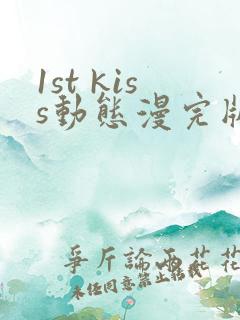 1st kis
s動態漫完版
爭斤論兩花花
未经同意禁止转载